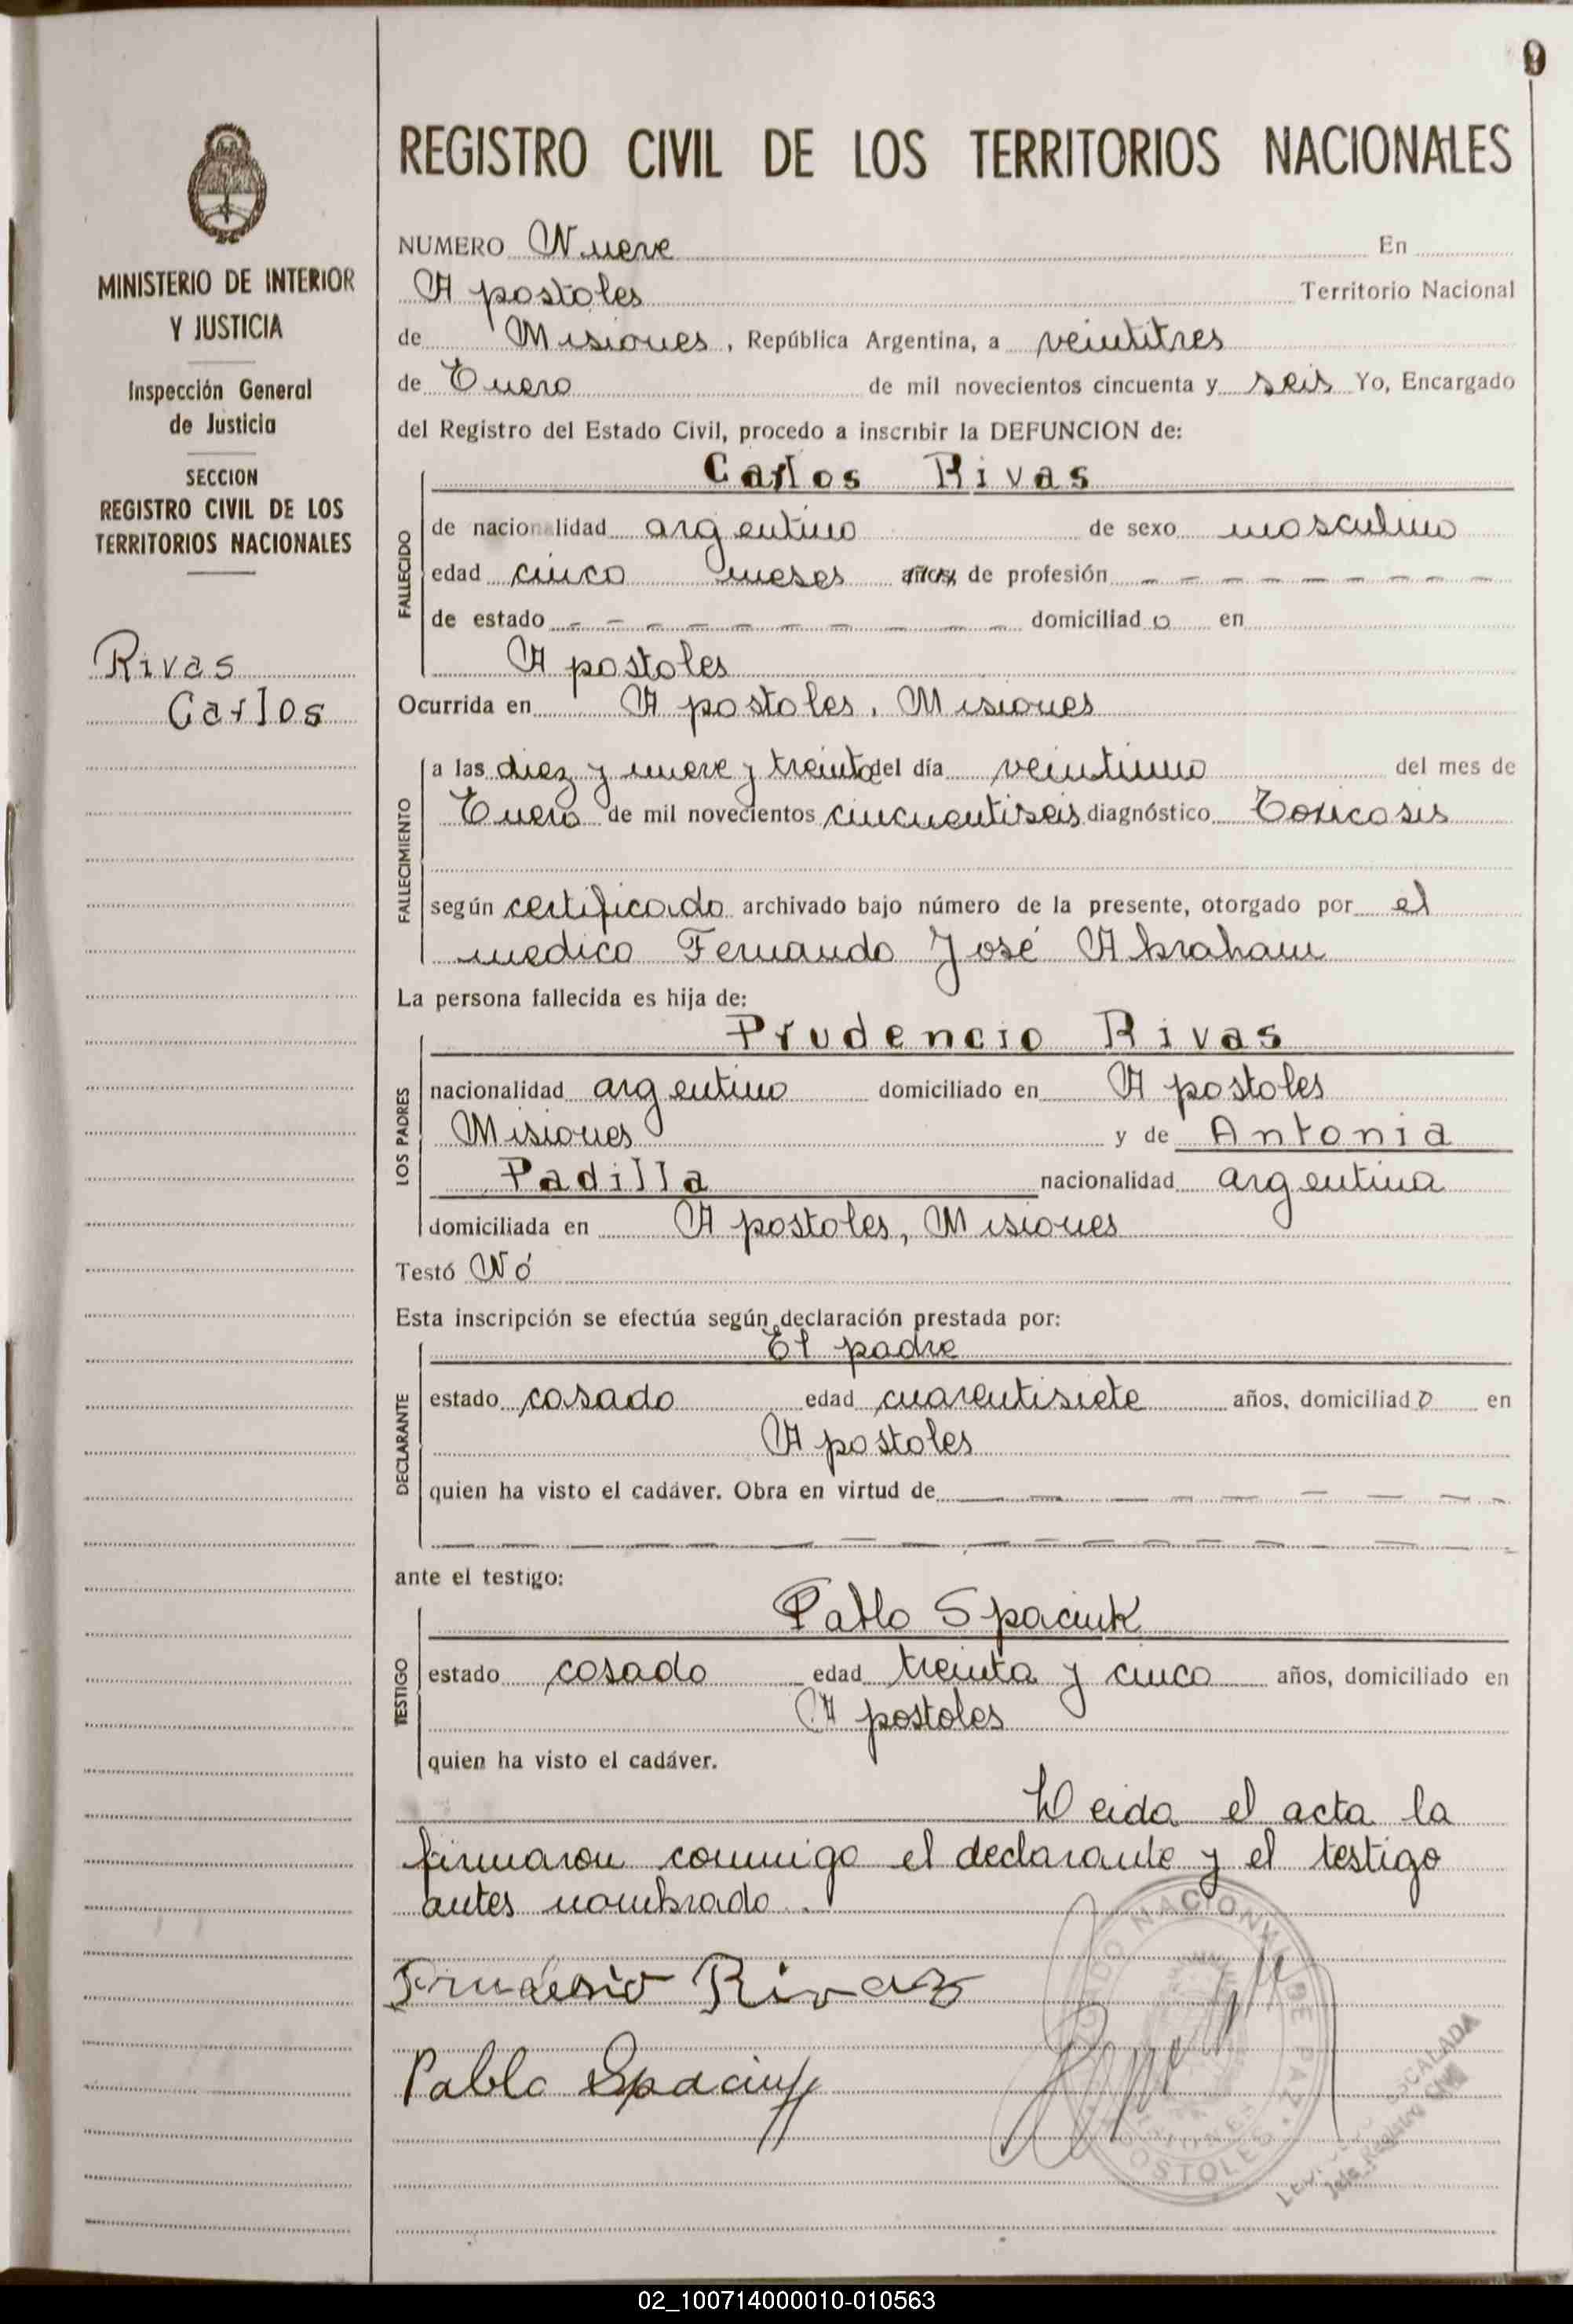 9
REGISTRO CIVIL DE LOS TERRITORIOS NACIONALES
MINISTERIO DE INTERIOR
Y JUSTICIA
Inspección General
de Justicia
SECCION
REGISTRO CIVIL DE LOS
TERRITORIOS NACIONALES
Rivas
Carlos
NUMERO Nueve En
Apostoles Territorio Nacional
de Misiones, República Argentina, a veintitres
de Enero de mil novecientos cincuenta y seis Yo, Encargado
del Registro del Estado Civil, procedo a inscribir la DEFUNCION de:
Carlos Rivas
FALLECIDO
de nacionalidad argentino de sexo masculino
edad cinco meses años de profesión - - - - - - - - -
de estado - - - - - - - - - - domiciliado en
Apostoles
Ocurrida en Apostoles, Misiones
FALLECIMIENTO
a las diez y nueve y treinta del día veintiuno del mes de
Enero de mil novecientos cincuentiseis diagnóstico Toxicosis
según certificado archivado bajo número de la presente, otorgado por el
medico Fernando José Abraham
La persona fallecida es hija de:
Prudencio Rivas
LOS PADRES
nacionalidad argentino domiciliado en Apostoles
Misiones y de Antonia
Padilla nacionalidad argentina
domiciliada en Apostoles, Misiones
Testó Nó
Esta inscripción se efectúa según declaración prestada por:
El padre
DECLARANTE
estado casado edad cuarentisiete años, domiciliado en
Apostoles
quien ha visto el cadáver. Obra en virtud de - - - - - - - -
- - - - - - - - - - - - - -
ante el testigo:
Pablo Spaciuk
TESTIGO
estado casado edad treinta y cinco años, domiciliado en
Apostoles
quien ha visto el cadáver.
Leida el acta la
firmaron conmigo el declarante y el testigo
antes nombrado.
Prudesio Rivaz
Pablo Spaciuk
NACIONAL DE PAZ
MISIONES
APOSTOLES
ESCALADA
Jefe Registro Civil
02_100714000010-010563